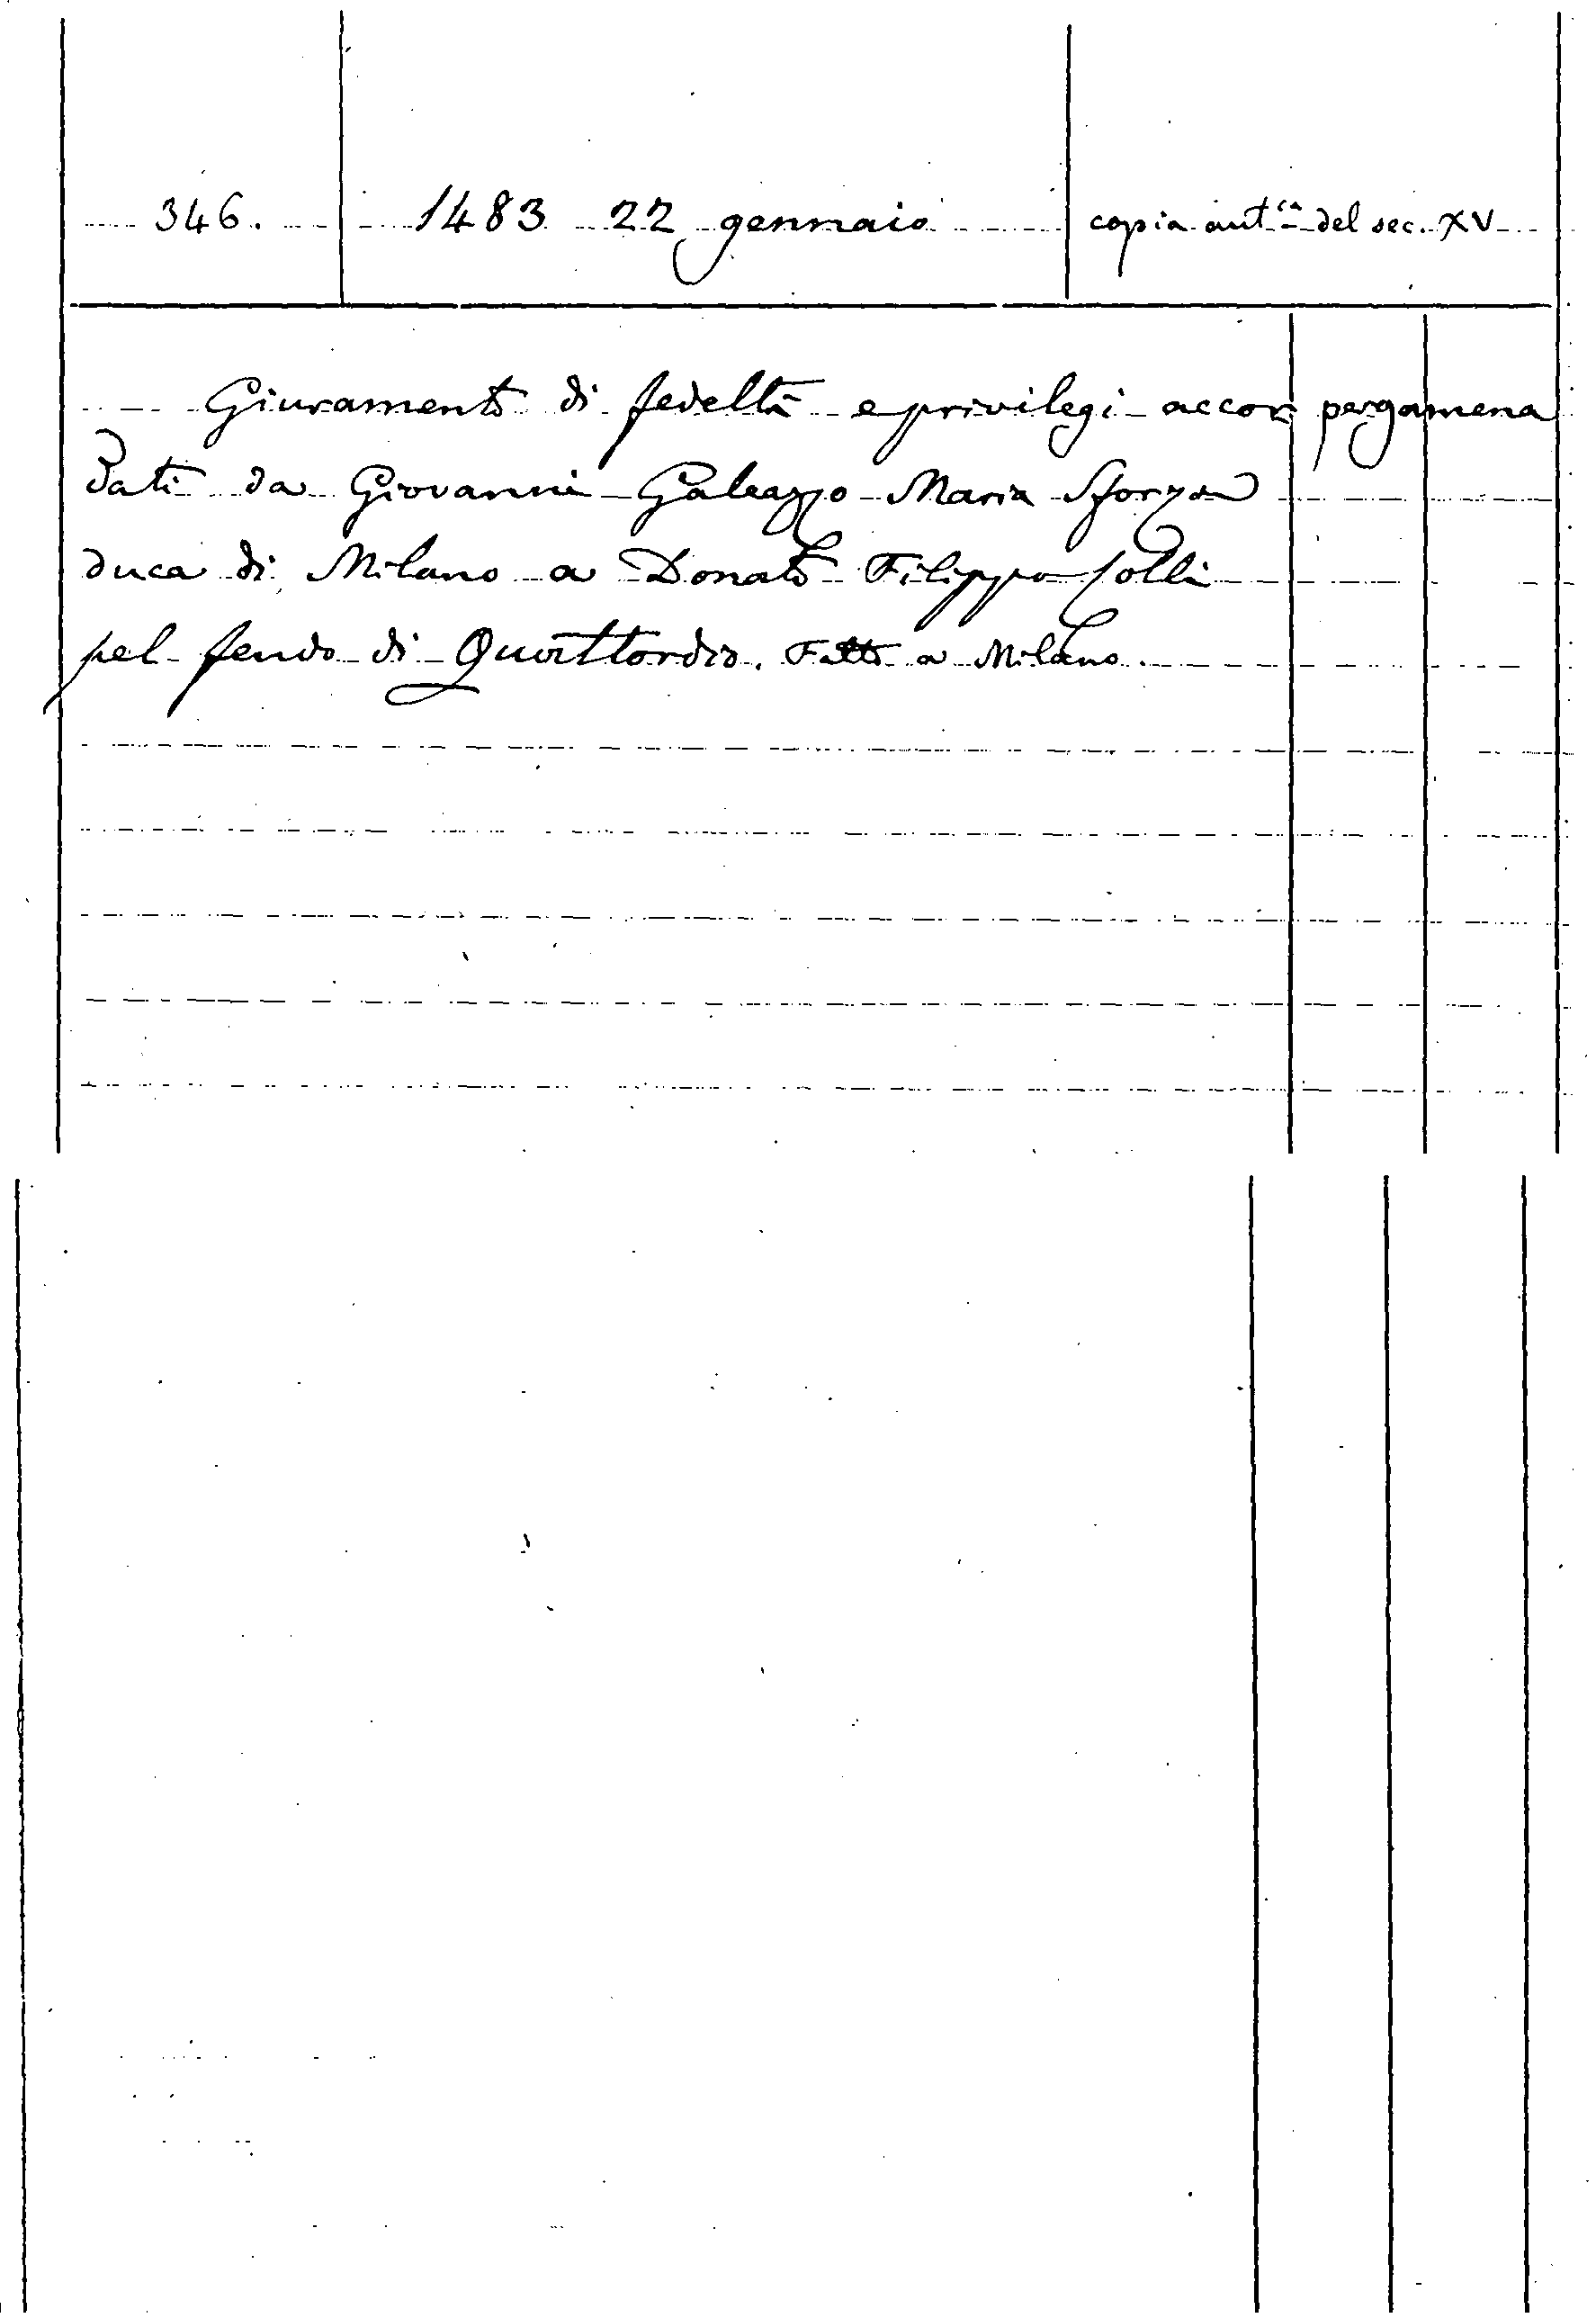 346. 1483 22 gennaio copia aut.ca del sec. XV
Giuramento di fedeltà e privilegi accor pergamena
dati da Giovanni Galeazzo Maria Sforza
duca di Milano a Donato Filippo Colli
pel feudo di Quattordio. Fatto a Milano.